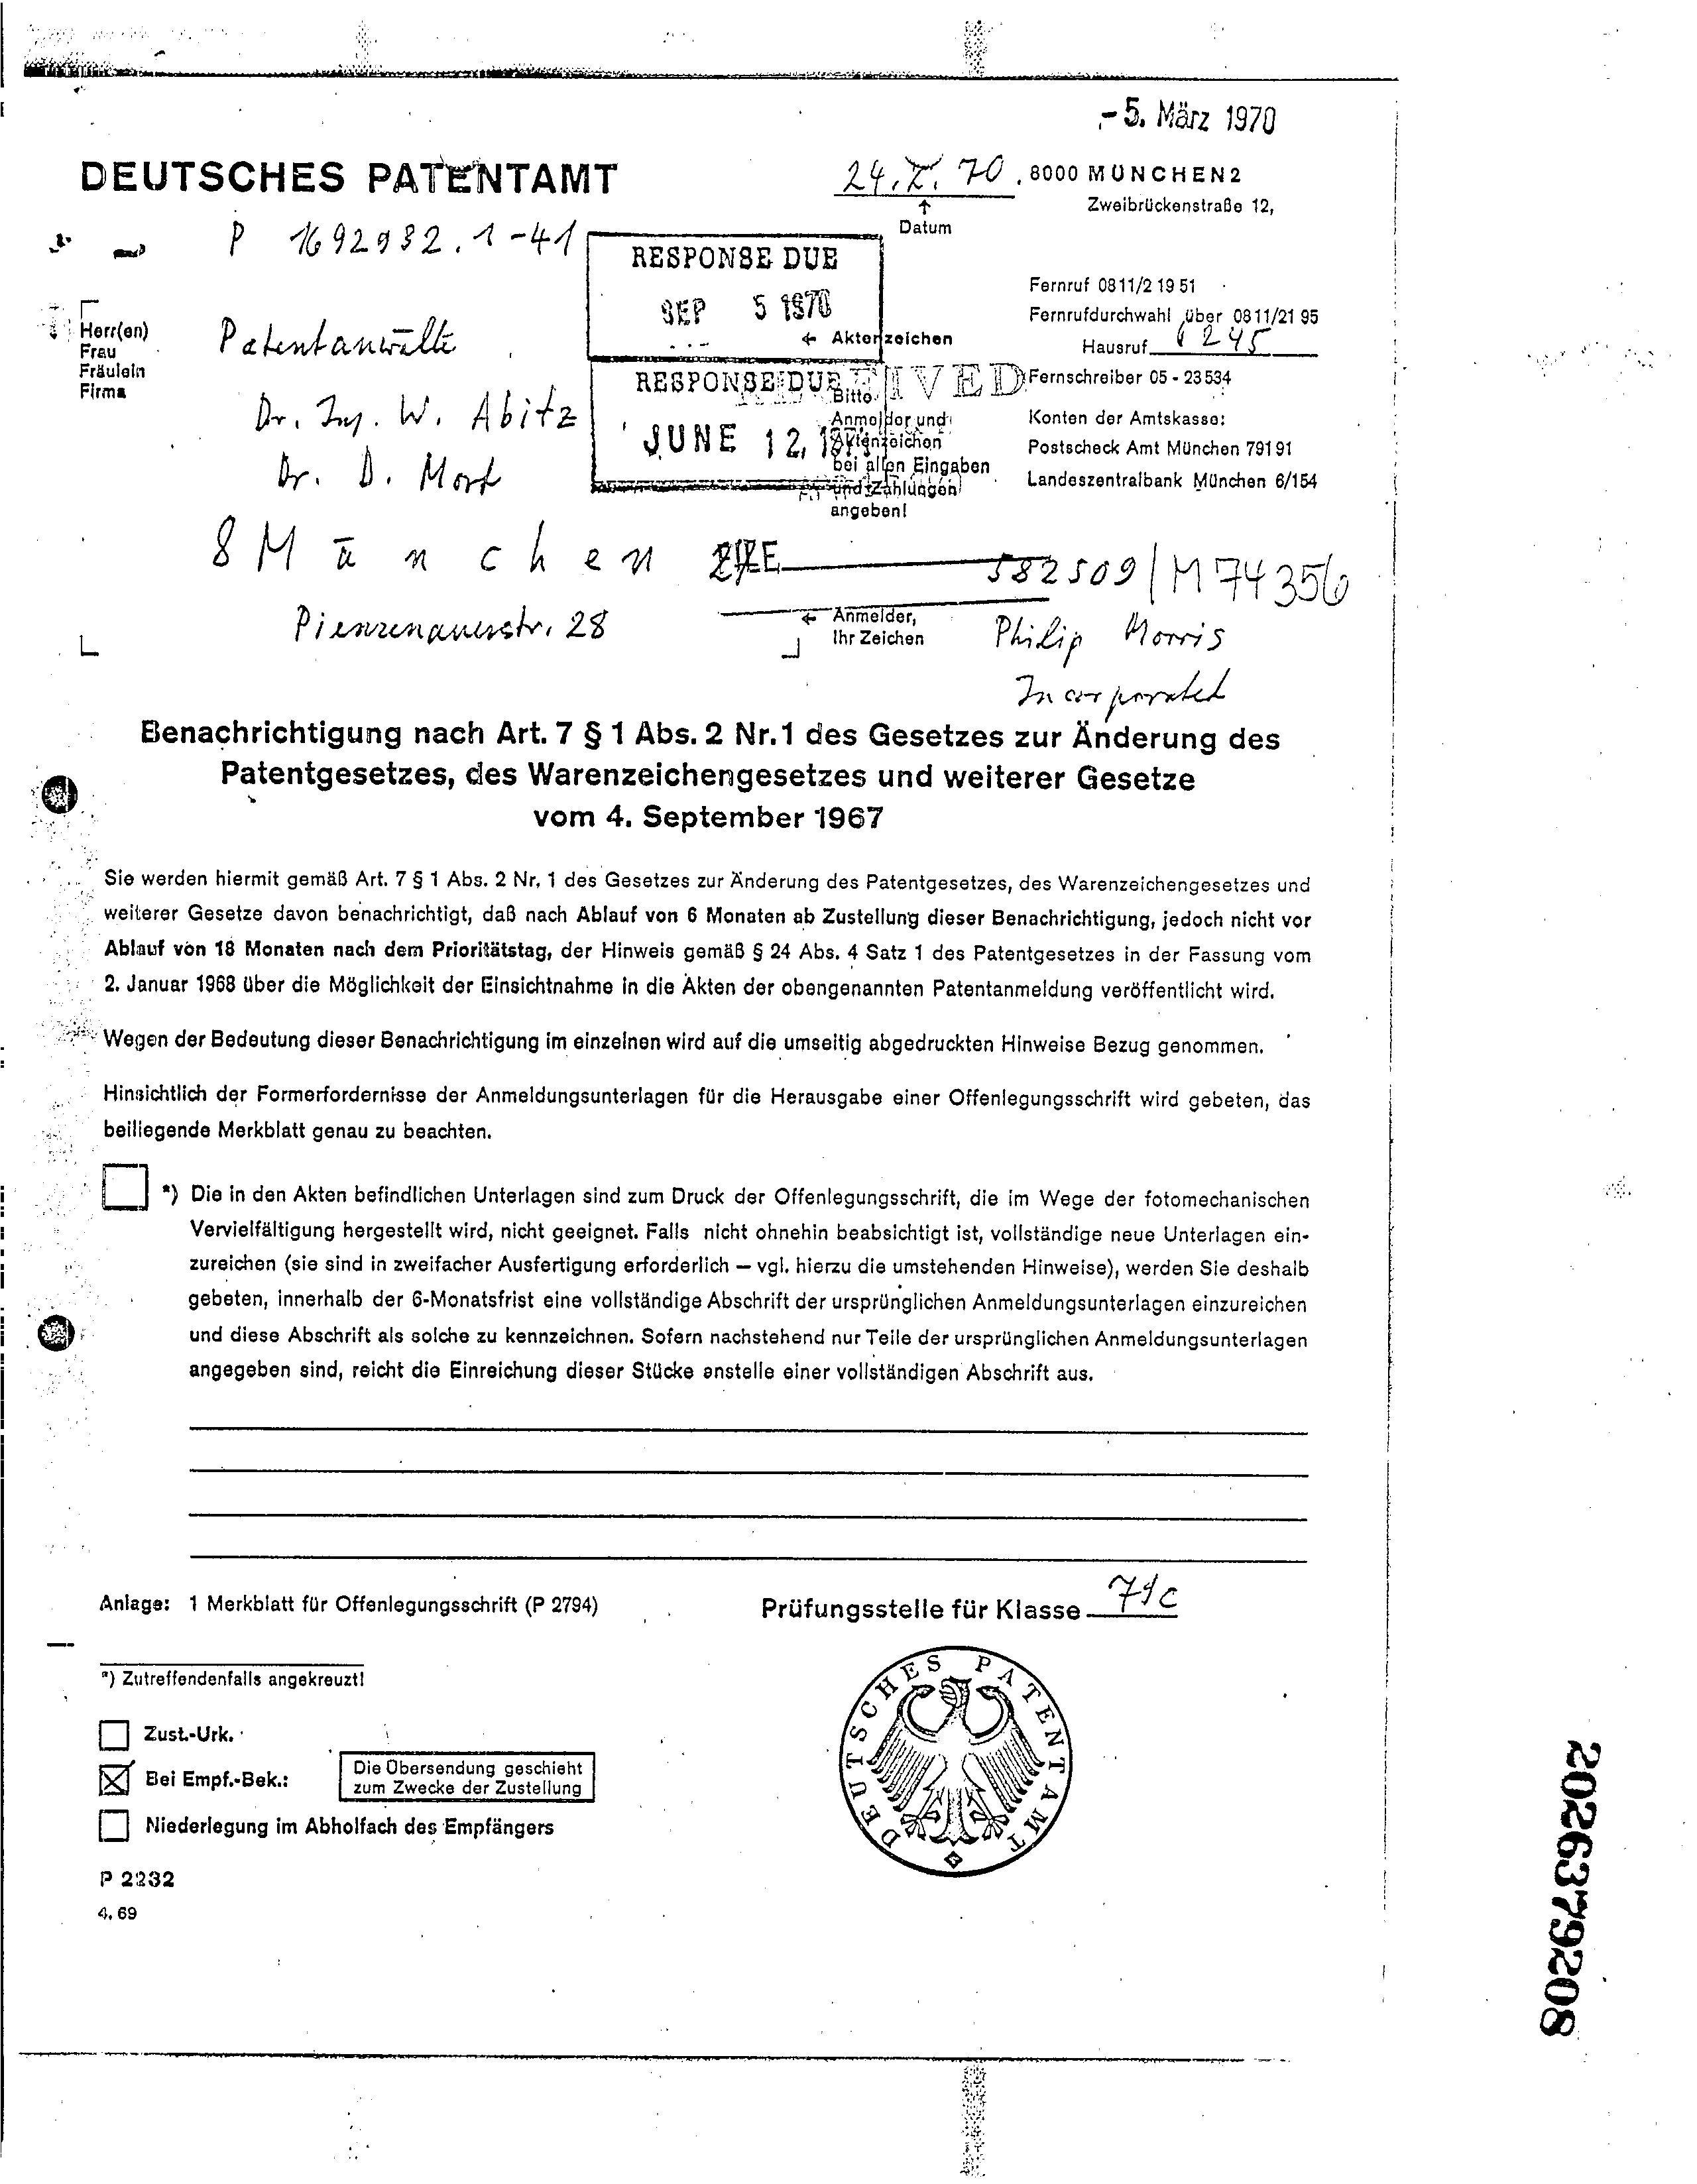 -5. März 1970
DEUTSCHES PATENTAMT
24. 70
8000 MÜNCHEN 2
Zweibrückenstraße 12,
↑
Datum
P 1692932.1-41
RESPONSE DUE
SEP 5 1970
← Aktenzeichen
Fernruf 0811/2 19 51
Fernrufdurchwahl über 0811/21 95
Hausruf 245
Herr(en)
Frau
Fräulein
Firma
Patentanwälte
Dr. Ing. W. Abitz
Dr. D. Morf
8 München
Pienzenauerstr. 28
RESPONSE DUE
JUNE 12,
Bitte
Anmelder und
Aktenzeichen
bei allen Eingaben
und Zahlungen
angeben!
Fernschreiber 05 - 23 534
Konten der Amtskasse:
Postscheck Amt München 791 91
Landeszentralbank München 6/154
582509/M74356
← Anmelder,
Ihr Zeichen
Philip Morris
Incorporated
Benachrichtigung nach Art. 7 § 1 Abs. 2 Nr. 1 des Gesetzes zur Änderung des
Patentgesetzes, des Warenzeichengesetzes und weiterer Gesetze
vom 4. September 1967
Sie werden hiermit gemäß Art. 7 § 1 Abs. 2 Nr. 1 des Gesetzes zur Änderung des Patentgesetzes, des Warenzeichengesetzes und
weiterer Gesetze davon benachrichtigt, daß nach Ablauf von 6 Monaten ab Zustellung dieser Benachrichtigung, jedoch nicht vor
Ablauf von 18 Monaten nach dem Prioritätstag, der Hinweis gemäß § 24 Abs. 4 Satz 1 des Patentgesetzes in der Fassung vom
2. Januar 1968 über die Möglichkeit der Einsichtnahme in die Akten der obengenannten Patentanmeldung veröffentlicht wird.
Wegen der Bedeutung dieser Benachrichtigung im einzelnen wird auf die umseitig abgedruckten Hinweise Bezug genommen.
Hinsichtlich der Formerfordernisse der Anmeldungsunterlagen für die Herausgabe einer Offenlegungsschrift wird gebeten, das
beiliegende Merkblatt genau zu beachten.
*) Die in den Akten befindlichen Unterlagen sind zum Druck der Offenlegungsschrift, die im Wege der fotomechanischen
Vervielfältigung hergestellt wird, nicht geeignet. Falls nicht ohnehin beabsichtigt ist, vollständige neue Unterlagen ein-
zureichen (sie sind in zweifacher Ausfertigung erforderlich — vgl. hierzu die umstehenden Hinweise), werden Sie deshalb
gebeten, innerhalb der 6-Monatsfrist eine vollständige Abschrift der ursprünglichen Anmeldungsunterlagen einzureichen
und diese Abschrift als solche zu kennzeichnen. Sofern nachstehend nur Teile der ursprünglichen Anmeldungsunterlagen
angegeben sind, reicht die Einreichung dieser Stücke anstelle einer vollständigen Abschrift aus.
Anlage: 1 Merkblatt für Offenlegungsschrift (P 2794)
Prüfungsstelle für Klasse 79c
*) Zutreffendenfalls angekreuzt!
Zust.-Urk.
Bei Empf.-Bek.:
Die Übersendung geschieht
zum Zwecke der Zustellung
Niederlegung im Abholfach des Empfängers
DEUTSCHES PATENTAMT
P 2232
4. 69
2026379208